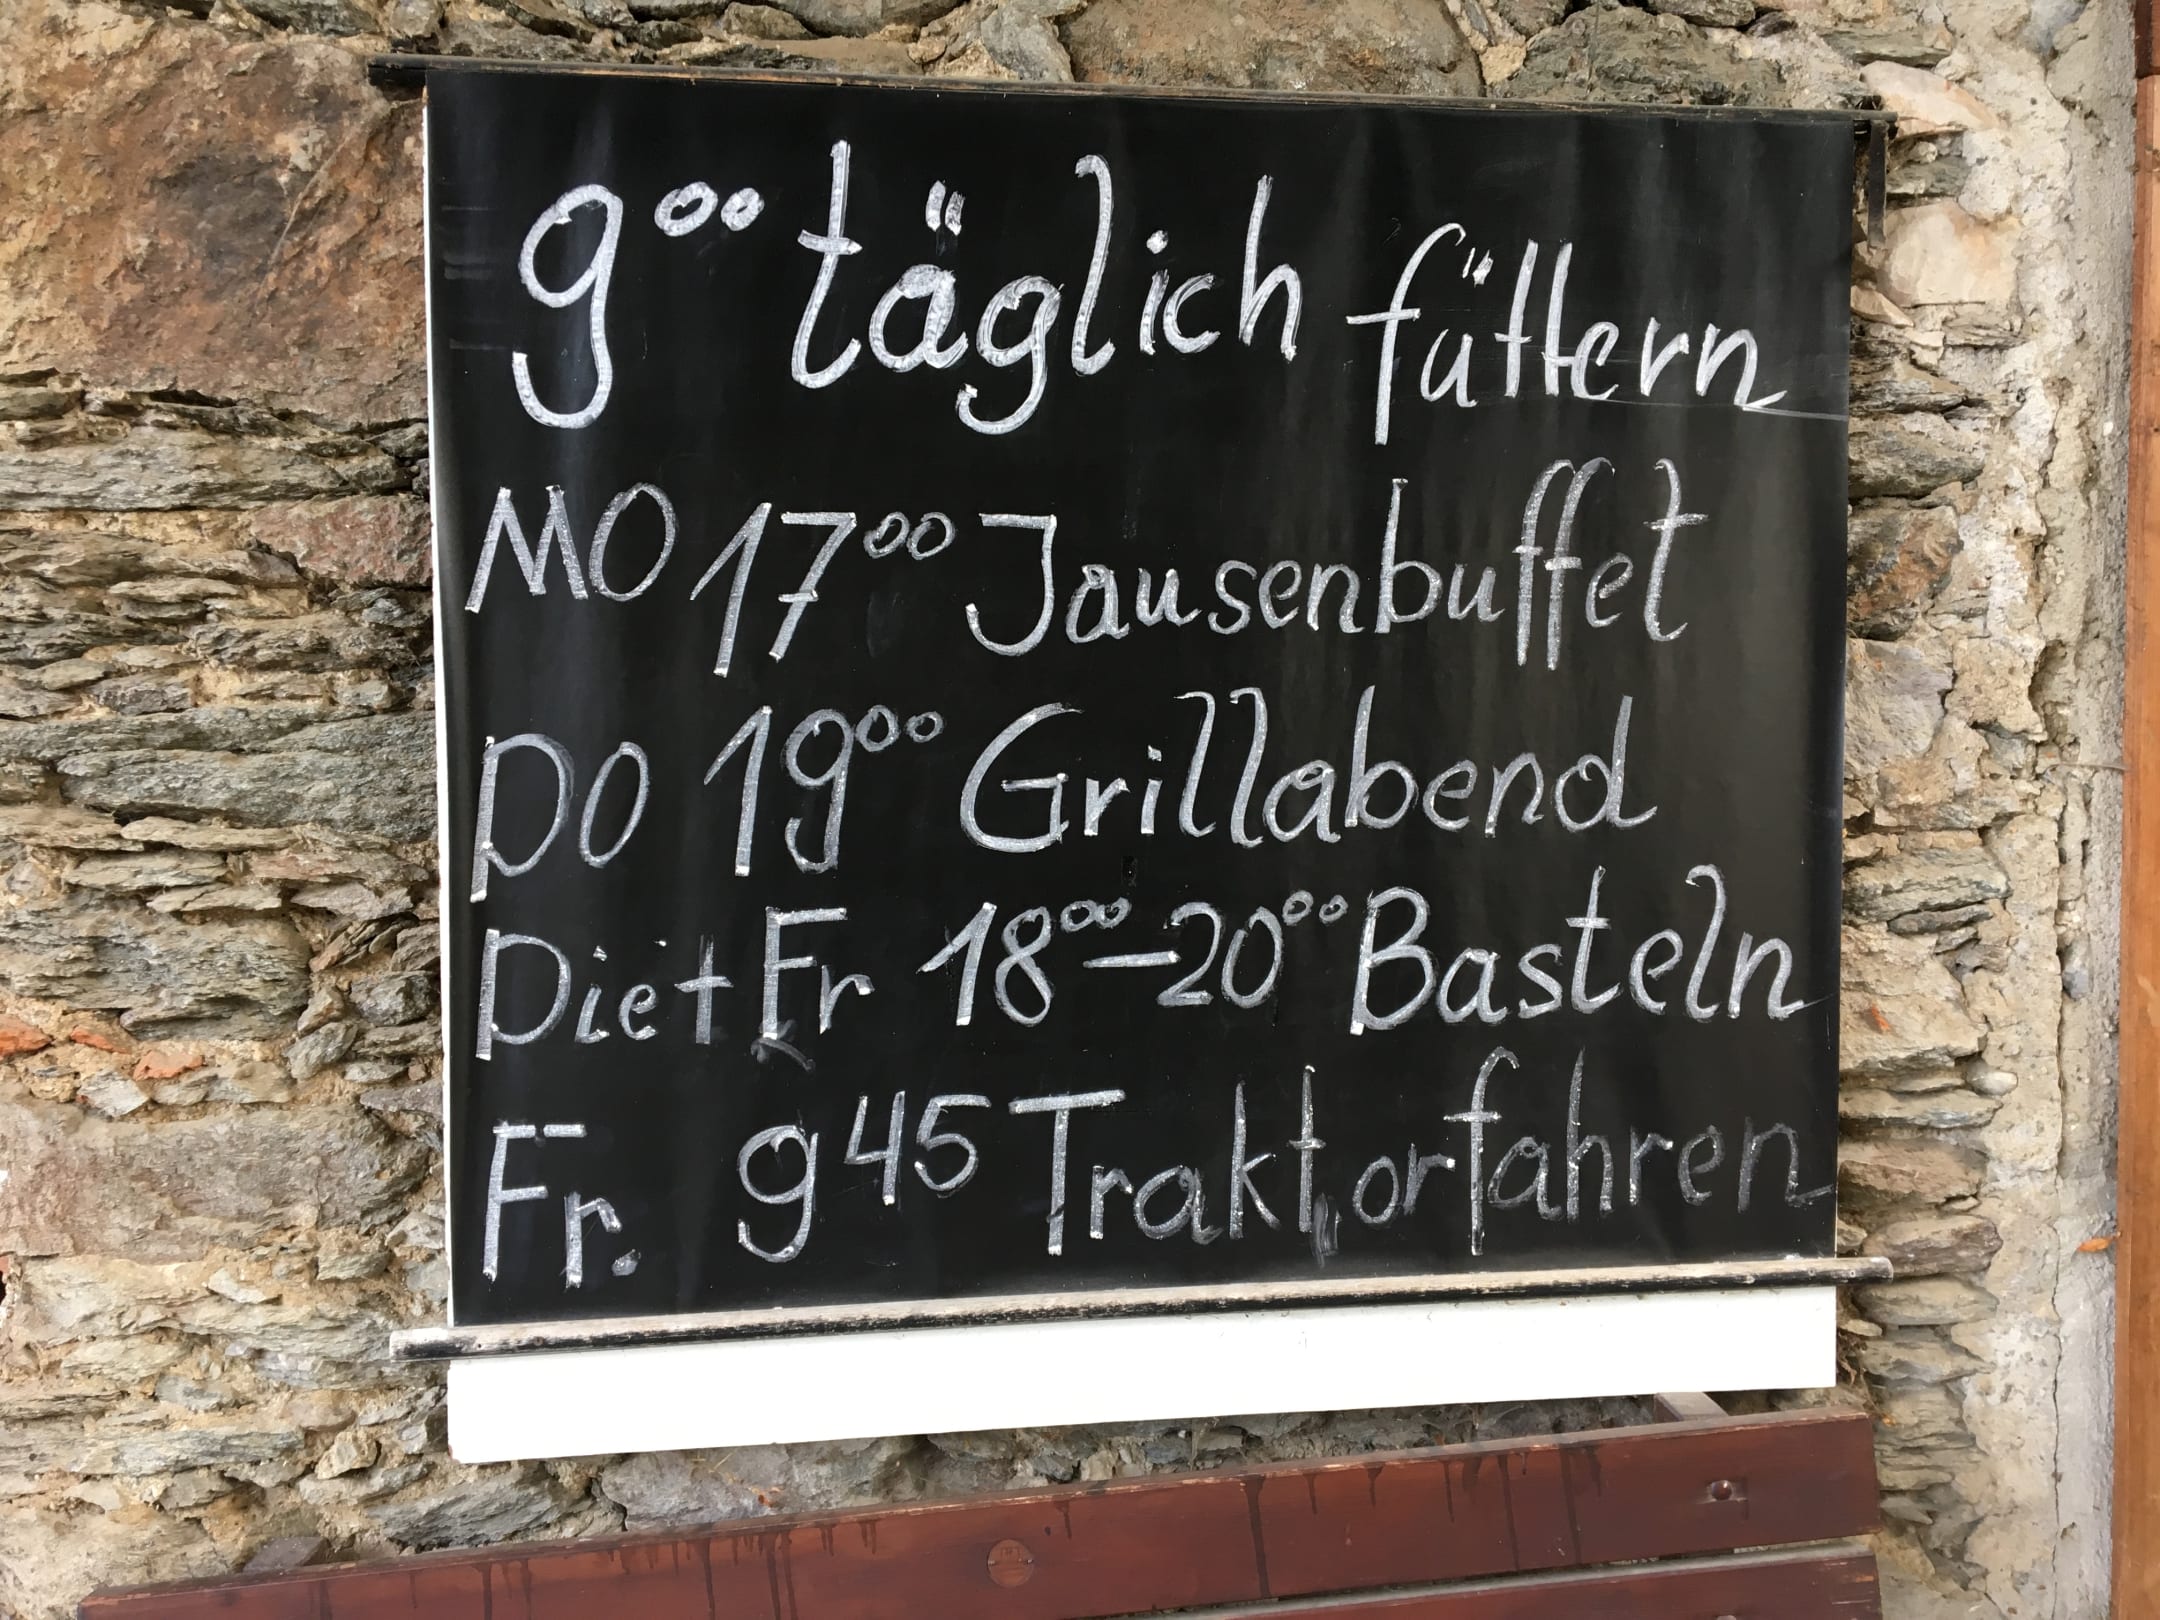 9⁰⁰ täglich füttern
MO 17⁰⁰ Jausenbuffet
DO 19⁰⁰ Grillabend
Die + Fr 18⁰⁰ – 20⁰⁰ Basteln
Fr. 9⁴⁵ Traktorfahren